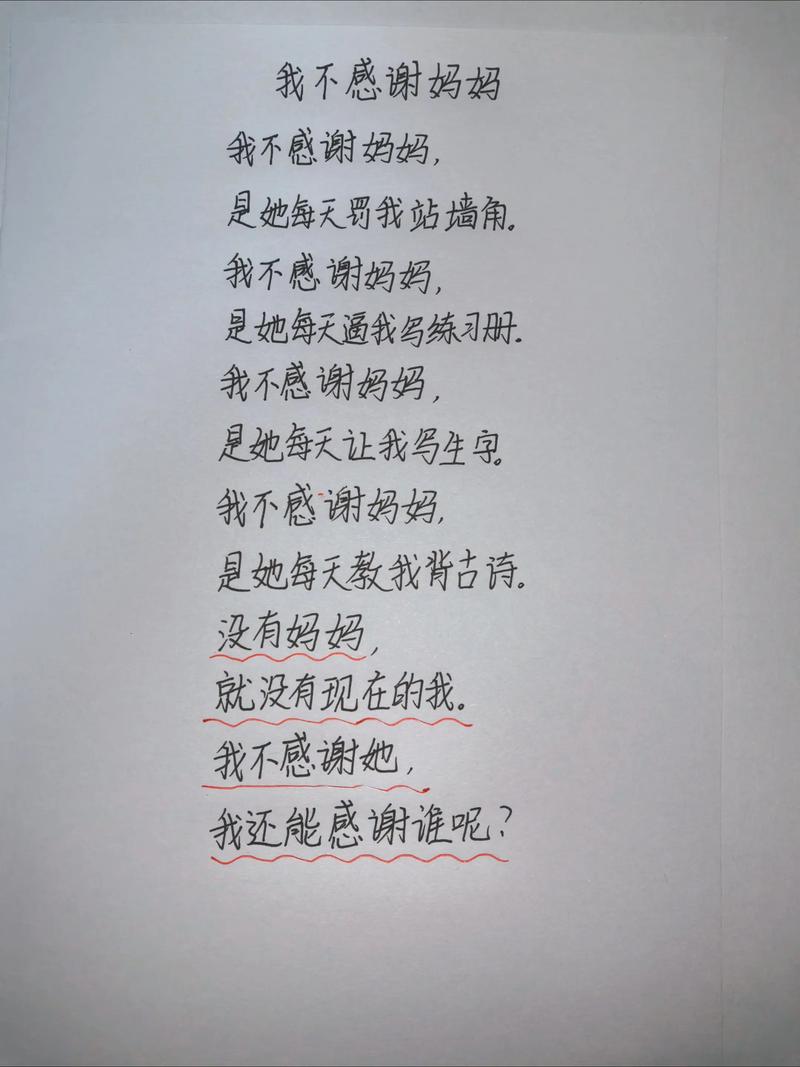 我不感谢妈妈
我不感谢妈妈,
是她每天罚我站墙角。
我不感谢妈妈,
是她每天逼我写练习册。
我不感谢妈妈,
是她每天让我写生字。
我不感谢妈妈,
是她每天教我背古诗。
没有妈妈,
就没有现在的我。
我不感谢她,
我还能感谢谁呢?